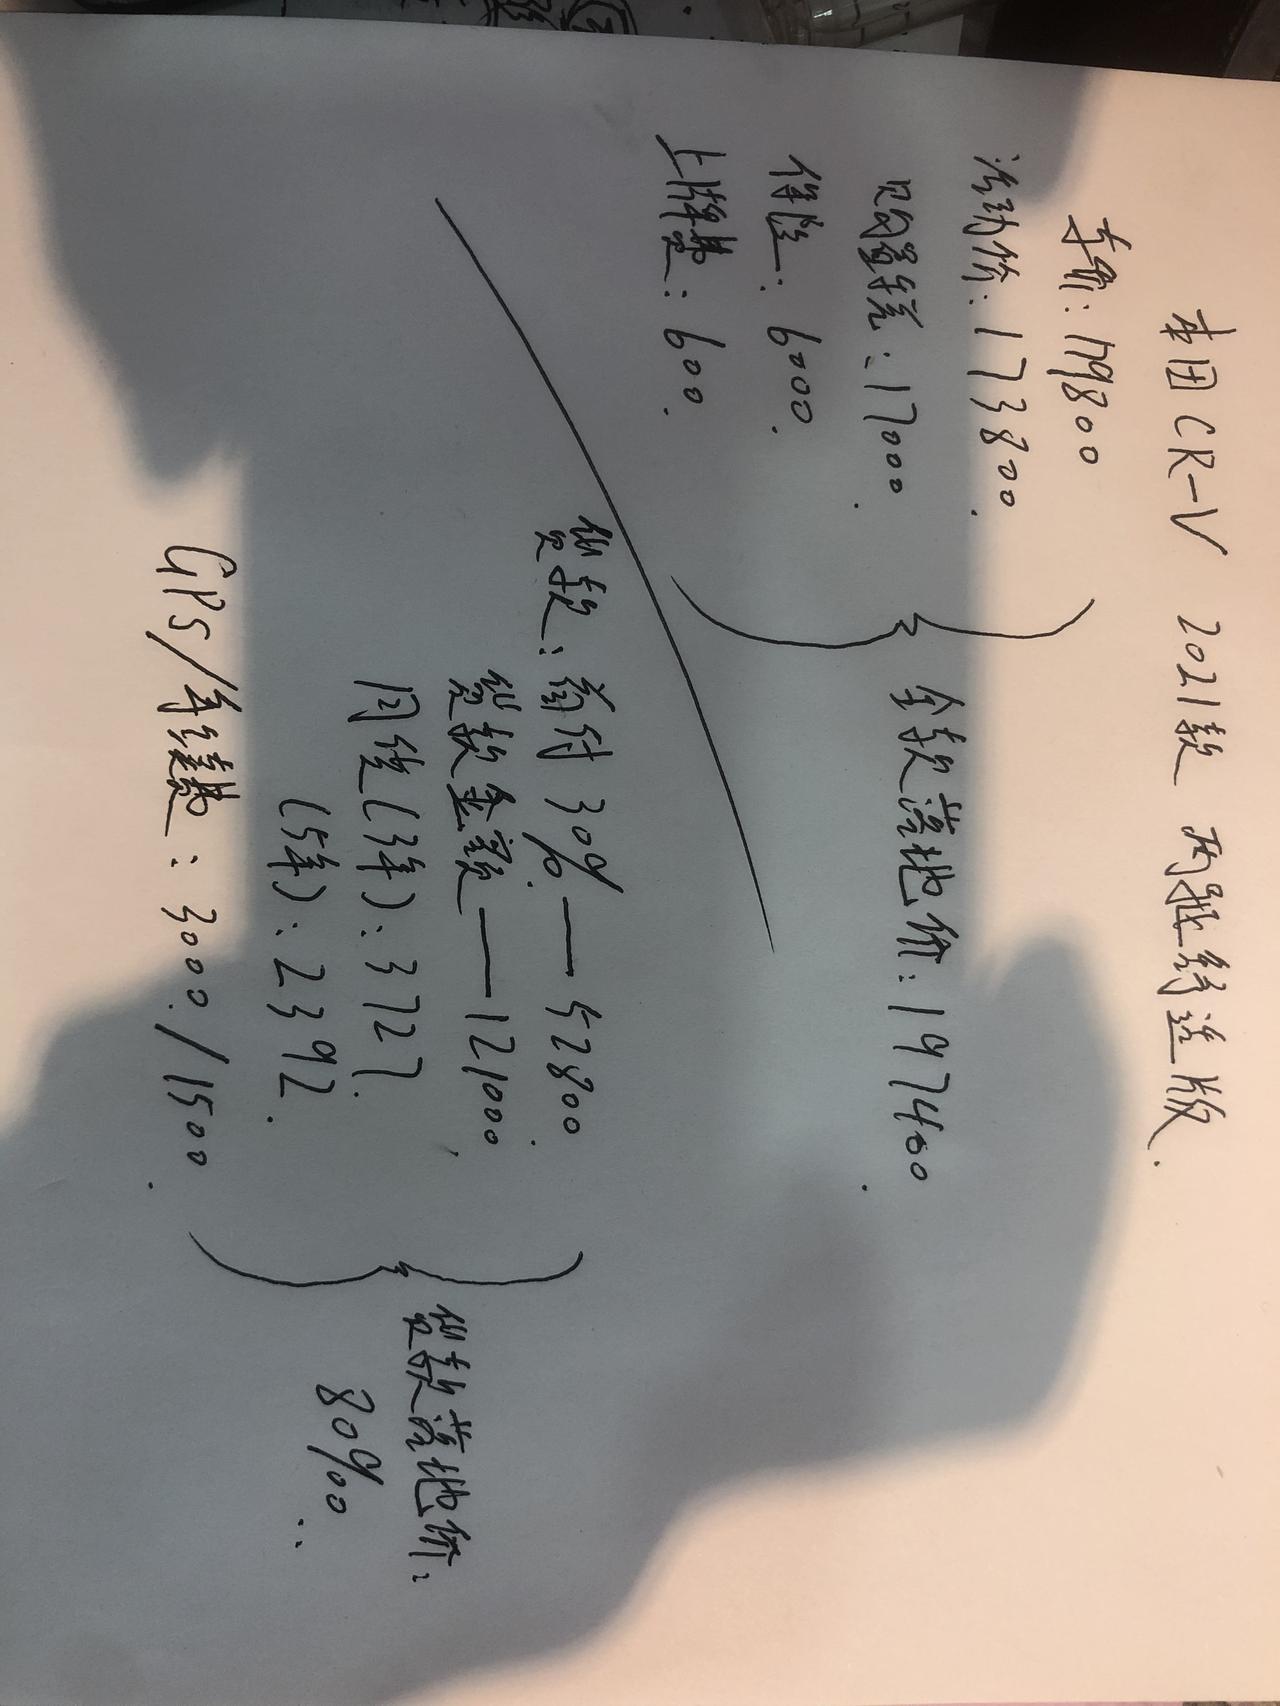 本田CR-V 2021款 两驱舒适版.
车价:179800
活动价:173800.
购置税:17000.
保险:6000.
上牌费:600.
全款落地价:197400.
贷款:首付30%——52800.
贷款金额——121000.
月供(3年):3727.
(5年):2392.
GPS/手续费:3000./1500.
贷款落地价:
80900..